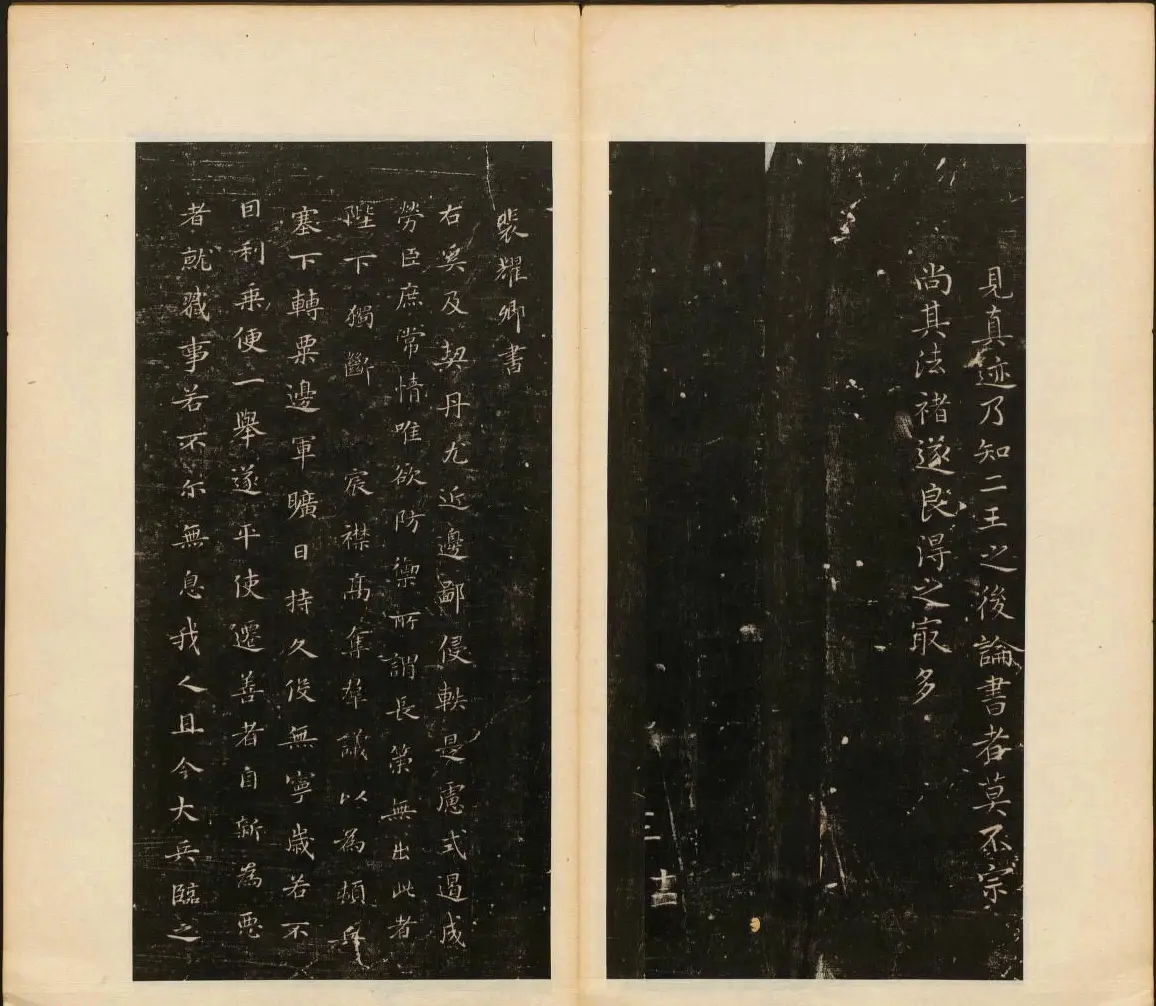 見真迹乃知二王之後論書者莫不宗
尚其法褚遂良得之㝡多
三
十三
裴耀卿書
右奚及契丹尤近邊鄙侵軼是慮式遏成
勞臣庶常情唯欲防禦所謂長策無出此者
陛下獨斷宸襟高奪羣議以為頓兵
塞下轉粟邊軍曠日持久役無寧歳若不
因利乗便一舉遂平使遷善者自新為惡
者就職事若不尓無息我人且今大兵臨之